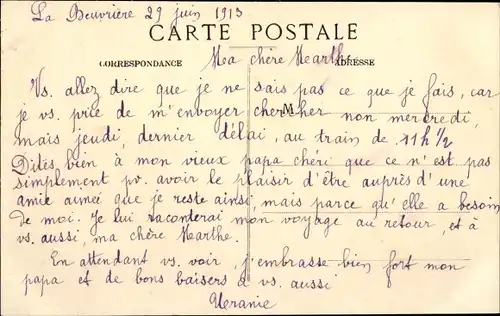 La Beuvrière 29 juin 1913
CARTE POSTALE
CORRESPONDANCE
Ma chère Marthe
ADRESSE
Vs. allez dire que je ne sais pas ce que je fais, car
je vs. prie de m'envoyer chercher non mercredi,
M
mais jeudi, dernier délai, au train de 11h 1/2
Dites bien à mon vieux papa chéri que ce n'est pas
simplement pr. avoir le plaisir d'être auprès d'une
amie aimée que je reste ainsi, mais parce qu'elle a besoin
de moi. Je lui raconterai mon voyage au retour, et à
vs. aussi, ma chère Marthe.
En attendant vs. voir, j'embrasse bien fort mon
papa et de bons baisers à vs. aussi
Uranie